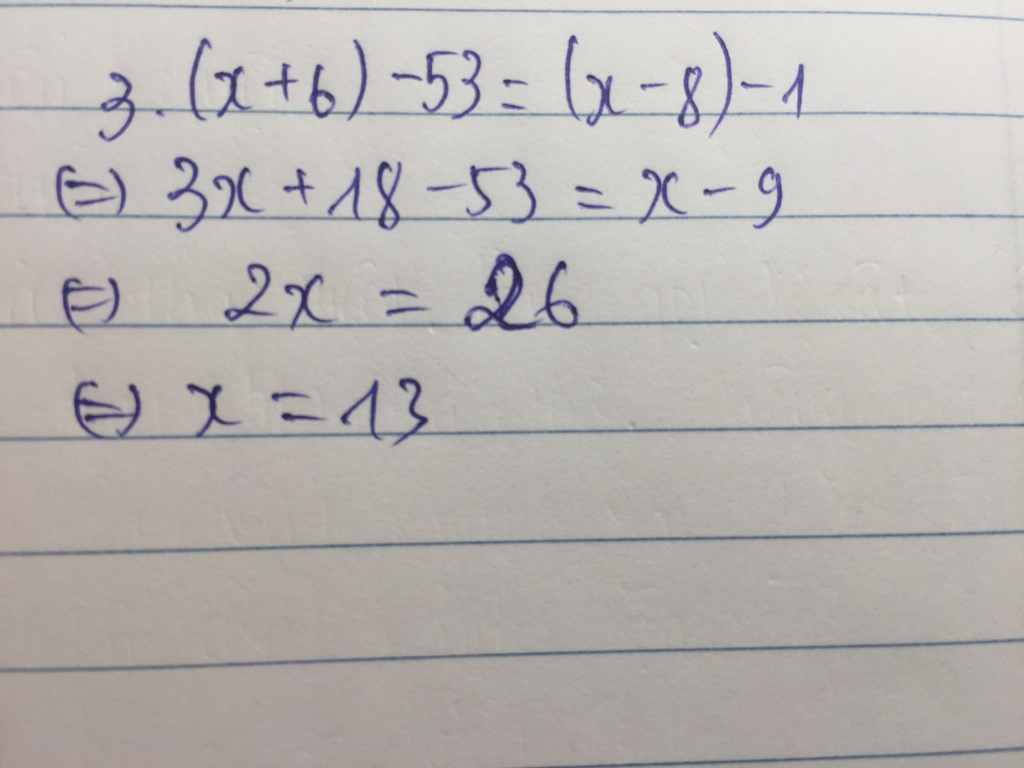 3. (x+6) -53 = (x-8) -1
(=) 3x + 18 - 53 = x - 9
(=) 2x = 26
(=) x = 13